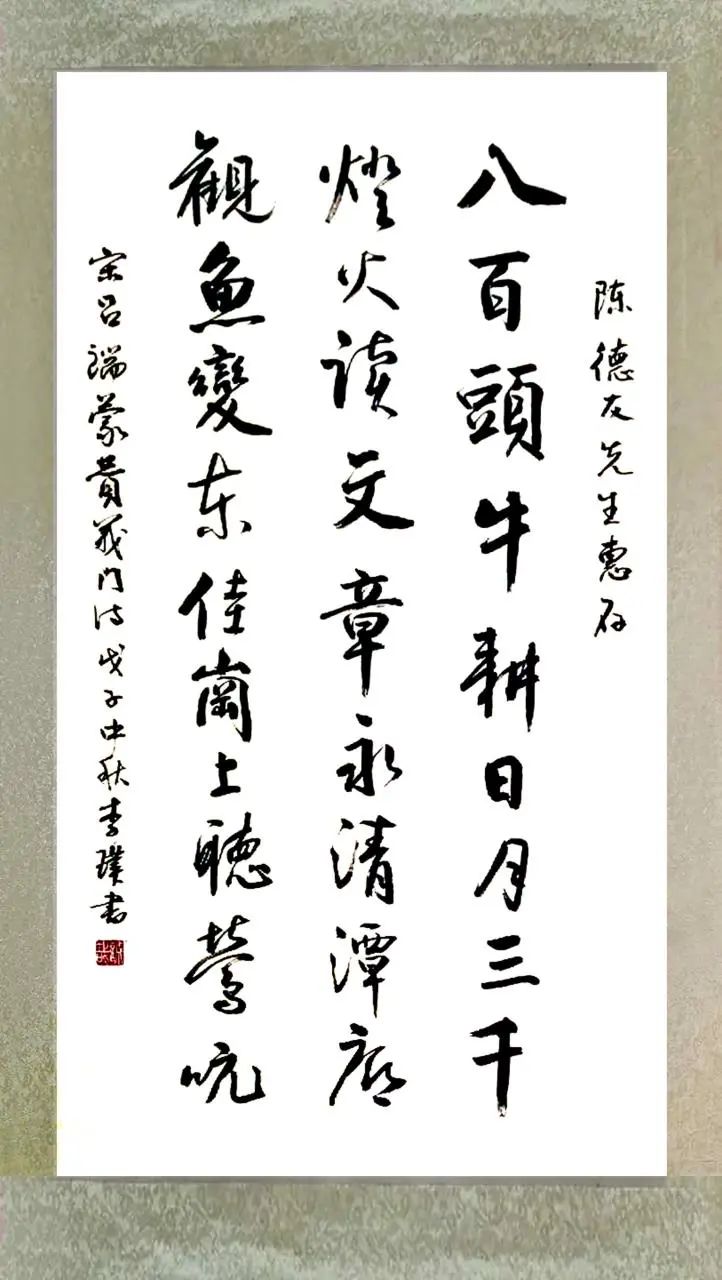 陈德友先生惠存
八百頭牛耕日月三千
燈火读文章永清潭
觀魚變东佳崗上聽鶯吭
宋吕端蒙贵義门诗戊子中秋李璞书